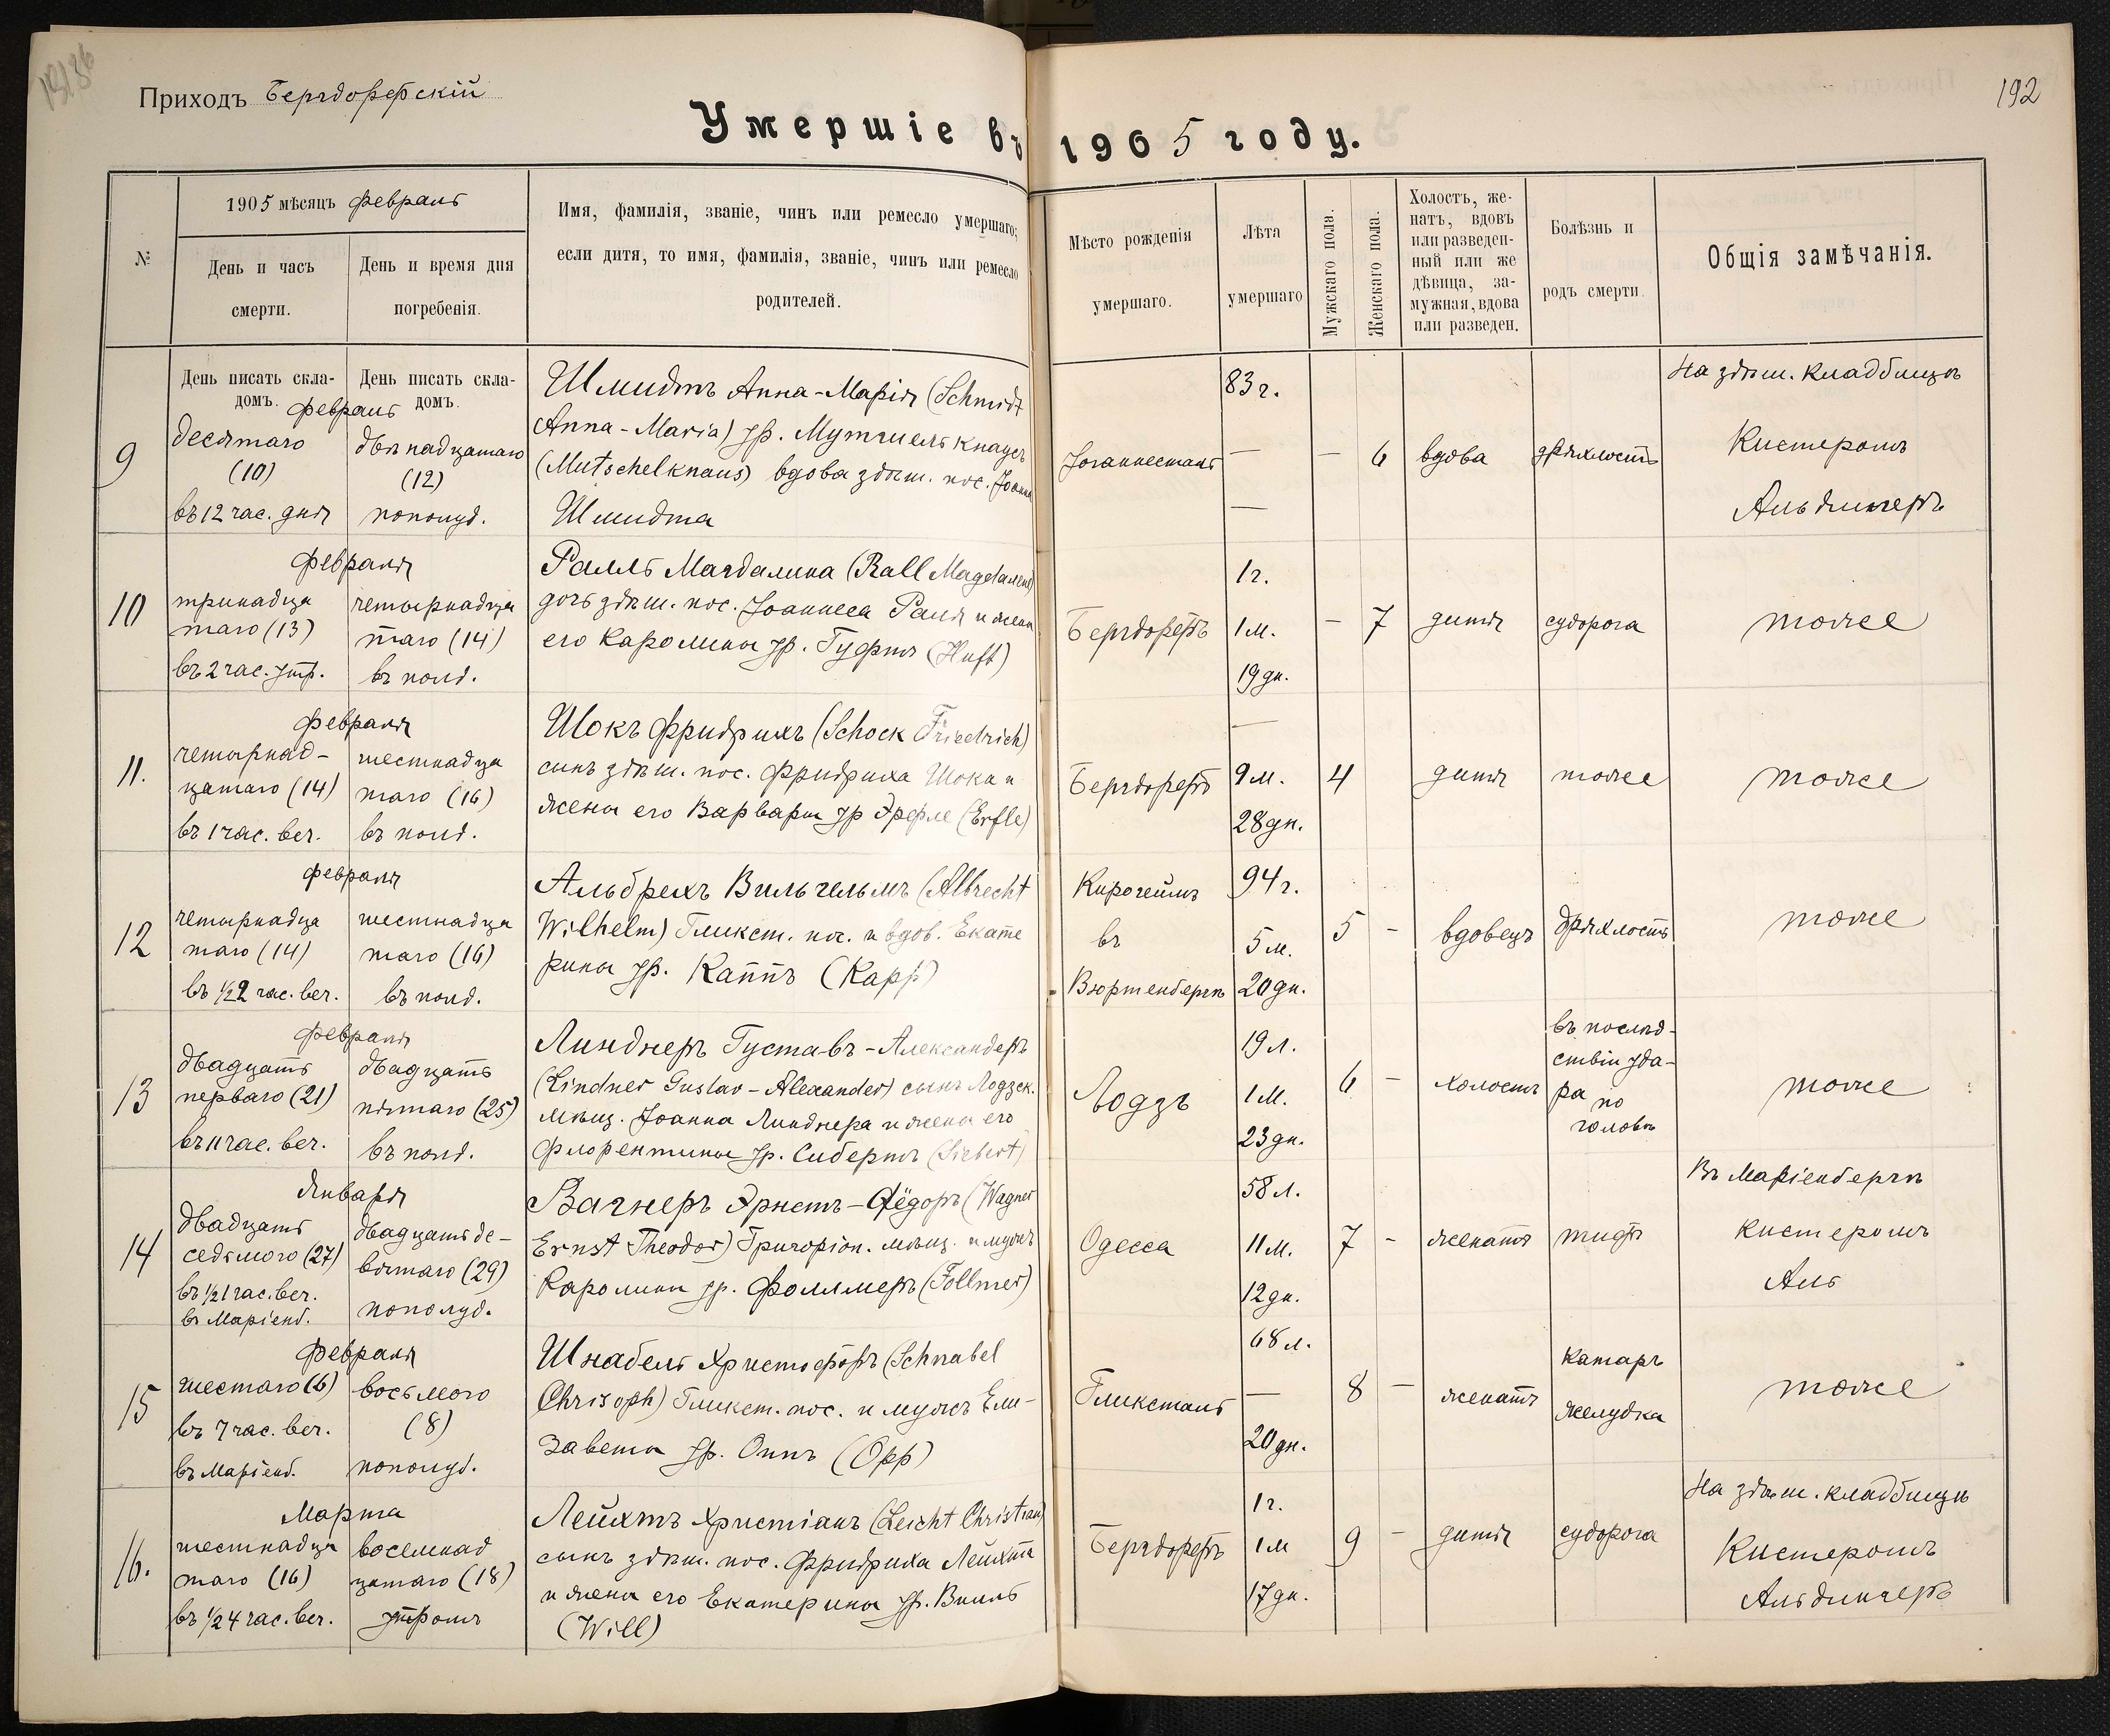 Приходъ Бергдорфскій
192
Умершіе въ 1905 году.
№
1905 мѣсяцъ февраль
День и часъ
смерти.
День и время дня
погребенія.
Имя, фамилія, званіе, чинъ или ремесло умершаго;
если дитя, то имя, фамилія, званіе, чинъ или ремесло
родителей.
Мѣсто рожденія
умершаго.
Лѣта
умершаго
Мужскаго пола.
Женскаго пола.
Холостъ, же-
натъ, вдовъ
или разведен-
ный или же
дѣвица, за-
мужная, вдова
или разведен.
Болѣзнь и
родъ смерти.
Общія замѣчанія.
День писать скла-
домъ.
День писать скла-
домъ.
9
февраль
десятаго
(10)
въ 12 час. дня
двѣнадцатаго
(12)
пополуд.
Шмидтъ Анна-Марія (Schmidt
Anna-Maria) ур. Мутшелькнаусъ
(Mutschelknaus) вдова здѣш. пос. Іоанна
Шмидта
Іоганнесталь
83 г.
—
—
—
6
вдова
дряхлость
На здѣш. кладбищѣ
Кистеромъ
Альдингеръ
10
февраля
тринадца
таго (13)
въ 2 час. утр.
четырнадца
таго (14)
въ полд.
Ралль Магдалина (Rall Magdalena)
дочь здѣш. пос. Іоаннеса Раля и жены
его Каролины ур. Гуфтъ (Huft)
Бергдорфъ
1 г.
1 м.
19 дн.
—
7
дитя
судорога
тоже
11.
февраля
четырнад-
цатаго (14)
въ 1 час. веч.
шестнадца
таго (16)
въ полд.
Шокъ Фридрихъ (Schock Friedrich)
сынъ здѣш. пос. Фридриха Шока и
жены его Варвары ур Эрфле (Erfle)
Бергдорфъ
—
9 м.
28 дн.
4
дитя
тоже
тоже
12
февраля
четырнадца
таго (14)
въ ½2 час. веч.
шестнадца
таго (16)
въ полд.
Альбрехъ Вильгельмъ (Albrecht
Wilhelm) Гликст. пос. и вдов. Екате
рины ур. Каппъ (Kapp)
Кирхгеймъ
въ
Вюртенбергѣ
94 г.
5 м.
20 дн.
5
-
вдовецъ
дряхлость
тоже
13
февраля
двадцать
перваго (21)
въ 11 час. веч.
двадцать
пятаго (25)
въ полд.
Линднеръ Густавъ-Александеръ
(Lindner Gustav-Alexander) сынъ Лодзск.
мѣщ. Іоанна Линднера и жены его
Флорентины ур. Сибертъ (Siebert)
Лодзь
19 л.
1 м.
23 дн.
6
-
холостъ
въ послѣд-
ствіи уда-
ра по
головѣ
тоже
14
Января
двадцать
седьмого (27)
въ ½1 час. веч.
въ Маріенб.
двадцать де-
вятаго (29)
пополуд.
Вагнеръ Эрнстъ-Фёдоръ (Wagner
Ernst Theodor) Григоріоп. мѣщ. и мужъ
Каролины ур. Фоллмеръ (Follmer)
Одесса
58 л.
11 м.
12 дн.
7
-
женатъ
тифъ
Въ Маріенбергѣ
кистеромъ
Аль
15
февраля
шестаго (6)
въ 7 час. веч.
въ Маріенб.
восьмого
(8)
пополуд.
Шнабель Христофоръ (Schnabel
Chrisoph) Гликст. пос. и мужъ Ели-
заветы ур. Оппъ (Opp)
Гликсталь
68 л.
—
20 дн.
8
—
женатъ
катаръ
желудка
тоже
16.
Марта
шестнадца
таго (16)
въ ½4 час. веч.
восемнад
цатаго (18)
утромъ
Лейхтъ Христіанъ (Leicht Christian)
сынъ здѣш. пос. Фридриха Лейхта
и жены его Екатерины ур. Вилль
(Will)
Бергдорфъ
1 г.
1 м
17 дн.
9
-
дитя
судорога
На здѣш. кладбищѣ
Кистеромъ
Альдингеръ